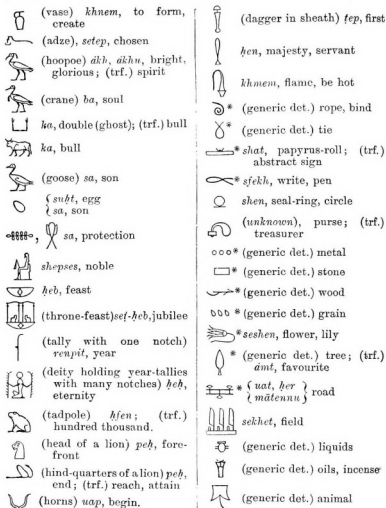 (vase) khnem, to form,
create
(adze), setep, chosen
(hoopoe) ȧkh, ȧkhu, bright,
glorious; (trf.) spirit
(crane) ba, soul
ka, double (ghost); (trf.) bull
ka, bull
(goose) sa, son
{ suḥt, egg
{ sa, son
, sa, protection
shepses, noble
ḥeb, feast
(throne-feast) seṭ-ḥeb, jubilee
(tally with one notch)
renpit, year
(deity holding year-tallies
with many notches) ḥeḥ,
eternity
(tadpole) ḥfen; (trf.)
hundred thousand.
(head of a lion) peḥ, fore-
front
(hind-quarters of a lion) peḥ,
end; (trf.) reach, attain
(horns) uap, begin.
(dagger in sheath) ṭep, first
ḥen, majesty, servant
khmem, flame, be hot
* (generic det.) rope, bind
* (generic det.) tie
* shat, papyrus-roll; (trf.)
abstract sign
* sfekh, write, pen
shen, seal-ring, circle
(unknown), purse; (trf.)
treasurer
* (generic det.) metal
* (generic det.) stone
* (generic det.) wood
* (generic det.) grain
* seshen, flower, lily
* (generic det.) tree; (trf.)
ȧmt, favourite
* { uat, ḥer } road
{ mȧtennu }
sekhet, field
(generic det.) liquids
(generic det.) oils, incense
(generic det.) animal